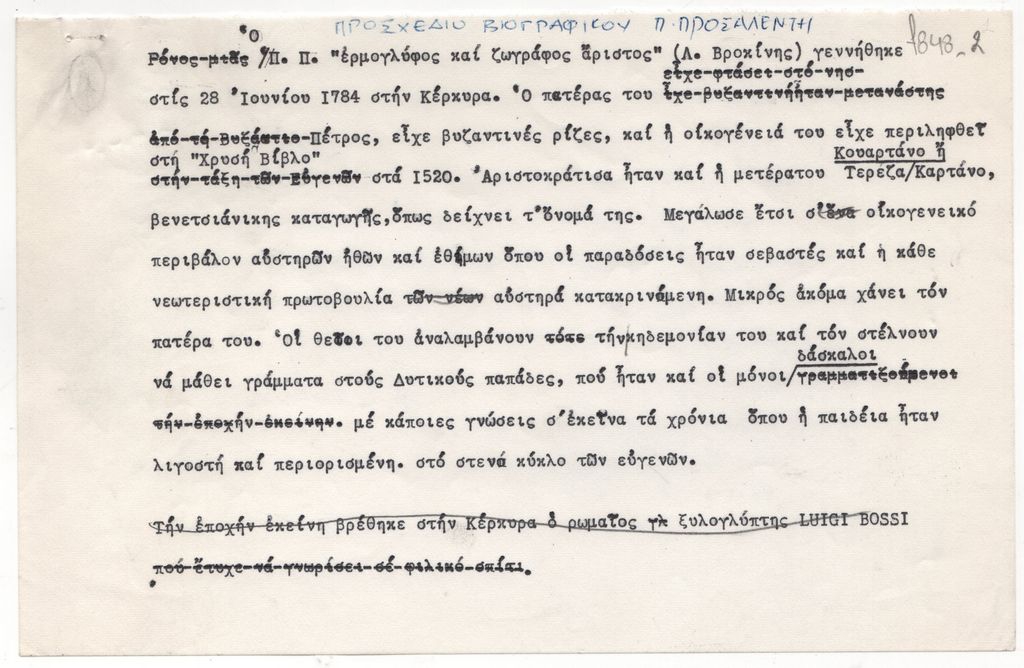 ΠΡΟΣΧΕΔΙΟ ΒΙΟΓΡΑΦΙΚΟΥ Π. ΠΡΟΣΑΛΕΝΤΗ
1843_2
Ὁ
Γόνος μιᾶς / Π. Π. "ἑρμογλύφος καί ζωγράφος ἄριστος" (Λ. Βροκίνης) γεννήθηκε
εἶχε φτάσει στό νησ-
στίς 28 Ἰουνίου 1784 στήν Κέρκυρα. Ὁ πατέρας του ἦταν μετανάστης
ἀπό τό Βυζάντιο Πέτρος, εἶχε βυζαντινές ρίζες, καί ἡ οἰκογένειά του εἶχε περιληφθεῖ
στή "Χρυσή Βίβλο"
Κουαρτάνο ἤ
στήν τάξη τῶν Εὐγενῶν στά 1520. Ἀριστοκράτισα ἦταν καί ἡ μετέρατου Τερέζα/Καρτάνο,
βενετσιάνικης καταγωγῆς,ὅπως δείχνει τ'ὄνομά της. Μεγάλωσε ἔτσι σ' ἕνα οἰκογενεικό
περιβάλον αὐστηρῶν ἠθῶν καί ἐθίμων ὅπου οἱ παραδόσεις ἦταν σεβαστές καί ἡ κάθε
νεωτεριστική πρωτοβουλία τῶν νέων αὐστηρά κατακρινόμενη. Μικρός ἀκόμα χάνει τόν
πατέρα του. Οἱ θεῖοι του ἀναλαμβάνουν τότε τήν κηδεμονίαν του καί τόν στέλνουν
δάσκαλοι
νά μάθει γράμματα στούς Δυτικούς παπάδες, πού ἦταν καί οἱ μόνοι/γραμματιζούμενοι
τήν ἐποχήν ἐκείνην. μέ κάποιες γνώσεις σ'ἐκεῖνα τά χρόνια ὅπου ἡ παιδεία ἦταν
λιγοστή καί περιορισμένη. στό στενά κύκλο τῶν εὐγενῶν.
Τήν ἐποχήν ἐκείνη βρέθηκε στήν Κέρκυρα ὁ ρωμαῖος ξυλογλύπτης LUIGI BOSSI
πού ἔτυχε νά γνωρίσει σέ φιλικό σπίτι.